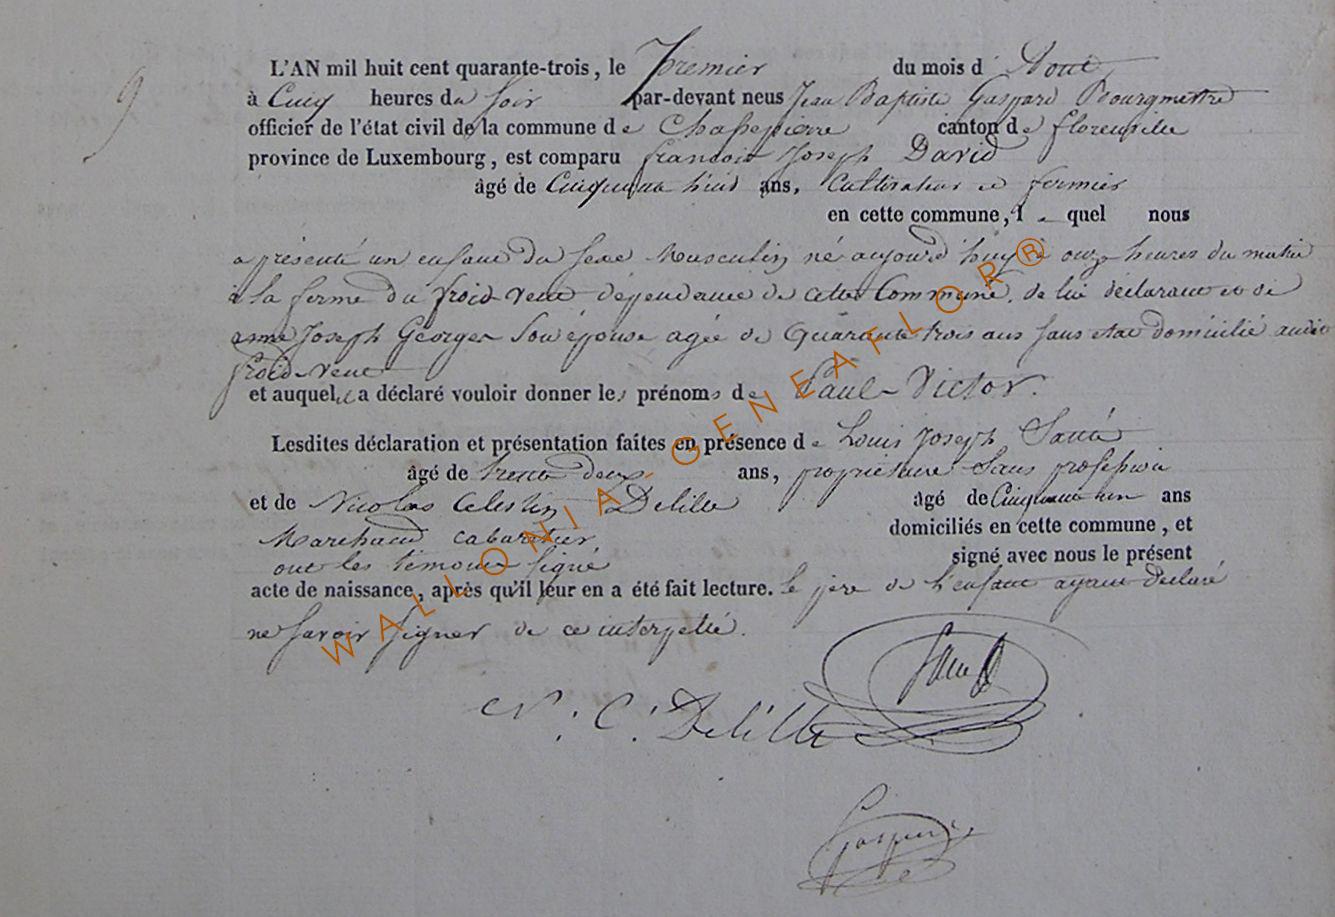 9
L'AN mil huit cent quarante-trois, le premier du mois d'Aout
à Cinq heures du soir par-devant nous Jean Baptiste Gaspard Bourgmestre
officier de l'état civil de la commune de Chassepierre canton de florenville
province de Luxembourg, est comparu françois Joseph David
âgé de Cinquante huit ans, Cultivateur et fermier
en cette commune, lequel nous
a présenté un enfant du sexe Masculin né aujourd'huy à onze heures du matin
à la ferme du froid vent dépendance de cette Commune, de lui déclarant et de
anne Joseph Georges Son épouse agée de Quarante trois ans sans etat domicilié audit
froid-vent
et auquel il a déclaré vouloir donner les prénoms de Paul-Victor.
Lesdites déclaration et présentation faites en présence de Louis Joseph
âgé de trente deux ans, propriétaire Sans profession
et de Nicolas Celestin Delille âgé de Cinquante un ans
Marchand cabaretier domiciliés en cette commune, et
ont les témoins signé signé avec nous le présent
acte de naissance, après qu'il leur en a été fait lecture. le père de l'enfant ayant déclaré
ne savoir signer de ce interpellé.
N. C. Delille
Gaspard
WALLONIA-GENEAFLOR®